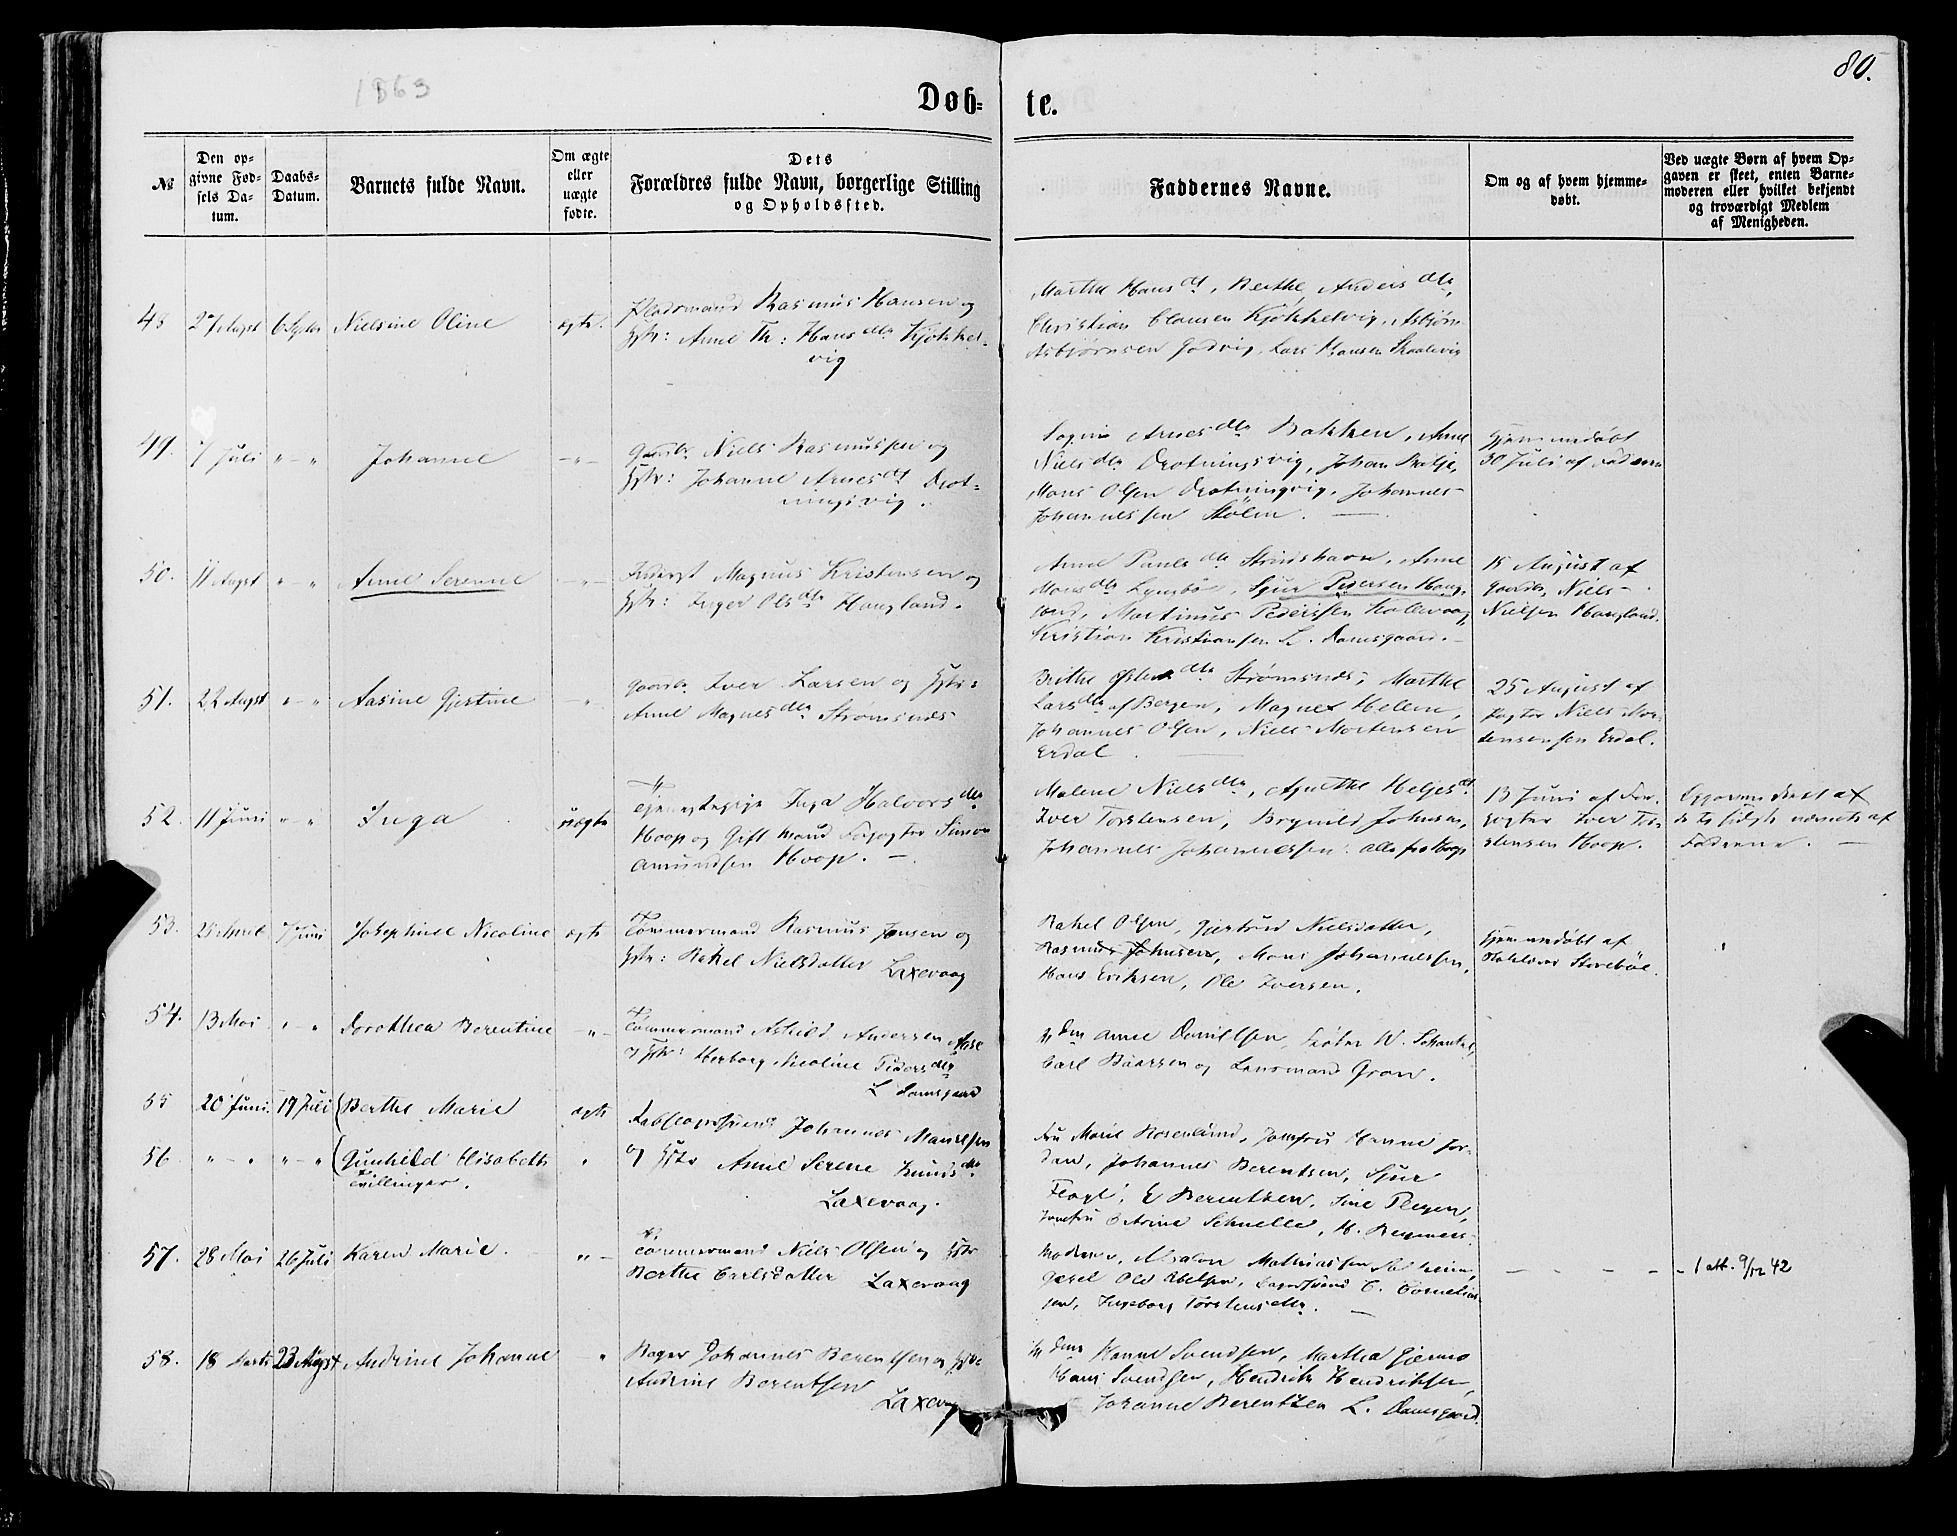 1863
80.
Døb-
te.
№
Den op-
givne Fød-
sels Da-
tum.
Daabs-
Datum.
Barnets fulde Navn.
Om ægte
eller
uægte
fødte.
Dets
Forældres fulde Navn, borgerlige Stilling
og Opholdssted.
Faddernes Navne.
Om og af hvem hjemme-
døbt.
Ved uægte Børn af hvem Op-
gaven er skeet, enten Barne-
moderen eller hvilket bekjendt
og troværdigt Medlem
af Menigheden.
48 27 Augst 6 Septr Nielsine Oline ægte.
Pladsmand Rasmus Hansen og
Hstr: Anne Th: Hansdtr Kjökkel-
vig
Marthe Hansdt, Berthe Andersdtr,
Christian Clausen Kjökkelvig, Asbjørn
Asbjørnsen Godvig, Lars Hansen Skaalevig
49. 7 Juli " - " Johanne - " -
Gaardbr. Niels Rasmussen og
Hstr: Johanne Arnesdt Drot-
ningsvig.
Arnesdtr Bakken, Anne
Nielsdtr Drotningsvig, Johan
Mons Olsen Drotningvig, Johannes
Johannessen Stölen.
Hjemmedöbt
30 Juli af Faderen
50. 11 Augst " - " Anne Serenne - " -
Magnus Kristensen og
Hstr: Inger Olsdtr Haugland.
Anne Paulsdtr Strudshavn, Anne
Monsdtr Lyngbö, Sjur Pedersen Haug-
land, Martinus Pedersen Kolevaag
Kristian Kristiansen L. Damsgaard.
15 August af
Gaardbr. Niels
Nielsen Haugland.
51. 22 Augst " - " Aasine Gjertine - " -
Gaardbr. Iver Larsen og Hstr:
Anne Magnesdtr Strømsnes
Brithe Olsdtr Strømsnes, Marthe
Larsdtr af Bergen, Magnes Helen,
Johannes Olsen, Niels Mortensen
Erdal.
25 August af
Niels Mor-
tensensen Erdal.
52. 11 Juni " - " Inga uægte
Inga Halvorsdtr
Hoop og Gift Mand Simon
Amundsen Hoop.
Malene Nielsdtr, Agnethe Heljesdt
Iver Torstensen, Brynild Johnsen,
Johannes Johannessen alle fra Hoop
13 Juni af For-
Iver Tor-
stensen Hoop.
af
af
Fadderne.
53. 25 7 Juni Josephine Nicoline ægte
Tömmermand Rasmus Jensen og
Hstr: Rakel Nielsdatter Laxevaag
Rakel Olsen, Gjertrud Nielsdatter,
Rasmus Johnsen, Mons Johannessen,
Hans Eriksen, Ole Iversen.
Hjemmedöbt af
Storebøe.
54. 13 Mai " " Dorothea Berentine - " -
Tömmermand Andersen
og Hstr: Herborg Nicoline Pedersdtr
L Damsgaard
Anne Danielsen, W.
Carl Baarsen og Lensmand Gran.
55 20 Juni. 19 Juli Berthe Marie ægte
Johannes Monssen
56 " - " " - " Gunhild Elisabeth "
Tvillinger.
og Hstr Anne Serene Knudsdtr
Laxevaag.
Fru Marie Rosenlund, Jomfru Hanne Jor-
dan, Johannes Berentsen, Sjur
E Berentsen, Sine
Jomfru Schnelle, H.
57. 28 Mai 26 Juli Karen Marie. " -
Tömmermand Niels Olsen og Hstr
Berthe Carlsdatter Laxevaag
Moderen, Absalon Mathiassen
Ole Abelsen, C. Cornelius-
sen, Ingeborg Torstensdtr.
- - - - - 1 att. 9/12 42
58. 18 Marts 23 Augst Andrine Johanne "
Bager Johannes Berentsen og Hstr
Andrine Berentsen
Laxevaag
Hanne Svendsen, Martha Gjermo
Hans Svendsen, Hendrik Hendriksen,
Johanne Berentsen L. Damsgaard.